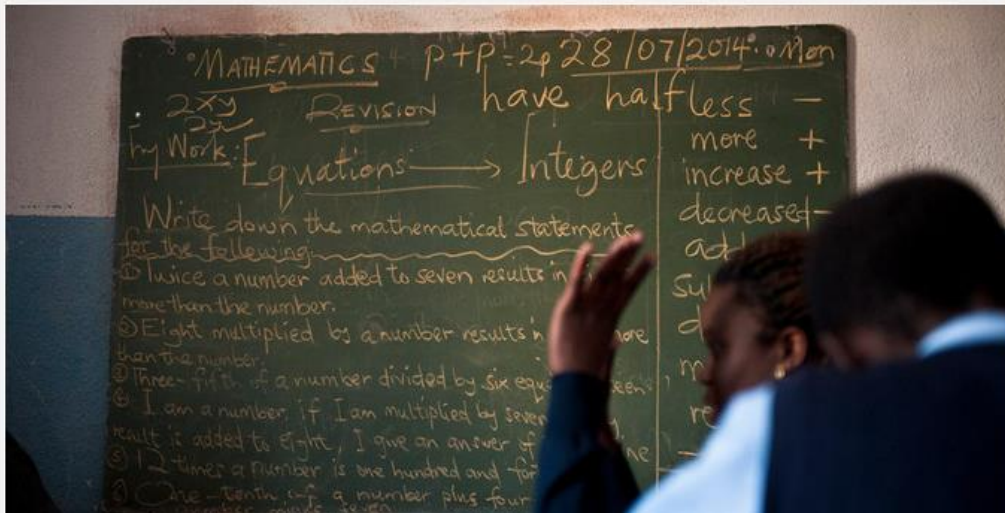 MATHEMATICS P+P=2p 28/07/2014 Mon
2xy REVISION have half less −
2y more +
Try Work: Equations → Integers increase +
Write down the mathematical statements decreased −
for the following: add
① Twice a number added to seven results in
more than the number.
② Eight multiplied by a number results in more
than the number.
③ Three-fifth of a number divided by six
④ I am a number, if I am multiplied by seven
result is added to eight, I give an answer of
⑤ 12 times a number is one hundred and
⑥ One-tenth of a number plus four
number minus seven